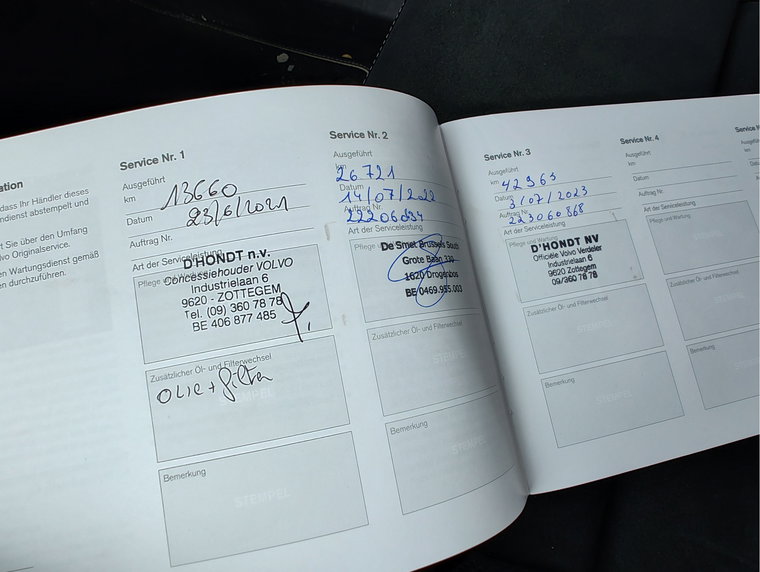 ation
dass Ihr Händler dieses
ndienst abstempelt und
t Sie über den Umfang
vo Originalservice.
en Wartungsdienst gemäß
n durchzuführen.
Service Nr. 1
Ausgeführt
km 13660
Datum 23/6/2021
Auftrag Nr.
Art der Serviceleistung
Pflege und Wartung
D'HONDT n.v.
Concessiehouder VOLVO
Industrielaan 6
9620 - ZOTTEGEM
Tel. (09) 360 78 78
BE 406 877 485
Zusätzlicher Öl- und Filterwechsel
Olie + filter
STEMPEL
Bemerkung
STEMPEL
Service Nr. 2
Ausgeführt
km 26 721
Datum 14/07/2022
Auftrag Nr.
Art der Serviceleistung
Pflege
De Smet Brussels South
Grote Baan
1620 Drogenbos
BE 0469.955.003
Zusätzlicher Öl- und Filterwechsel
STEMPEL
Bemerkung
STEMPEL
Service Nr. 3
Ausgeführt
km 42363
Datum 3/07/2023
Auftrag Nr. 223060868
Art der Serviceleistung
Pflege und Wartung
D'HONDT NV
Officiële Volvo Verdeler
Industrielaan 6
9620 Zottegem
09/360 78 78
Zusätzlicher Öl- und Filterwechsel
STEMPEL
Bemerkung
STEMPEL
Service Nr. 4
Ausgeführt
km
Datum
Auftrag Nr.
Art der Serviceleistung
Pflege und Wartung
Zusätzlicher Öl- und
Bemerkung